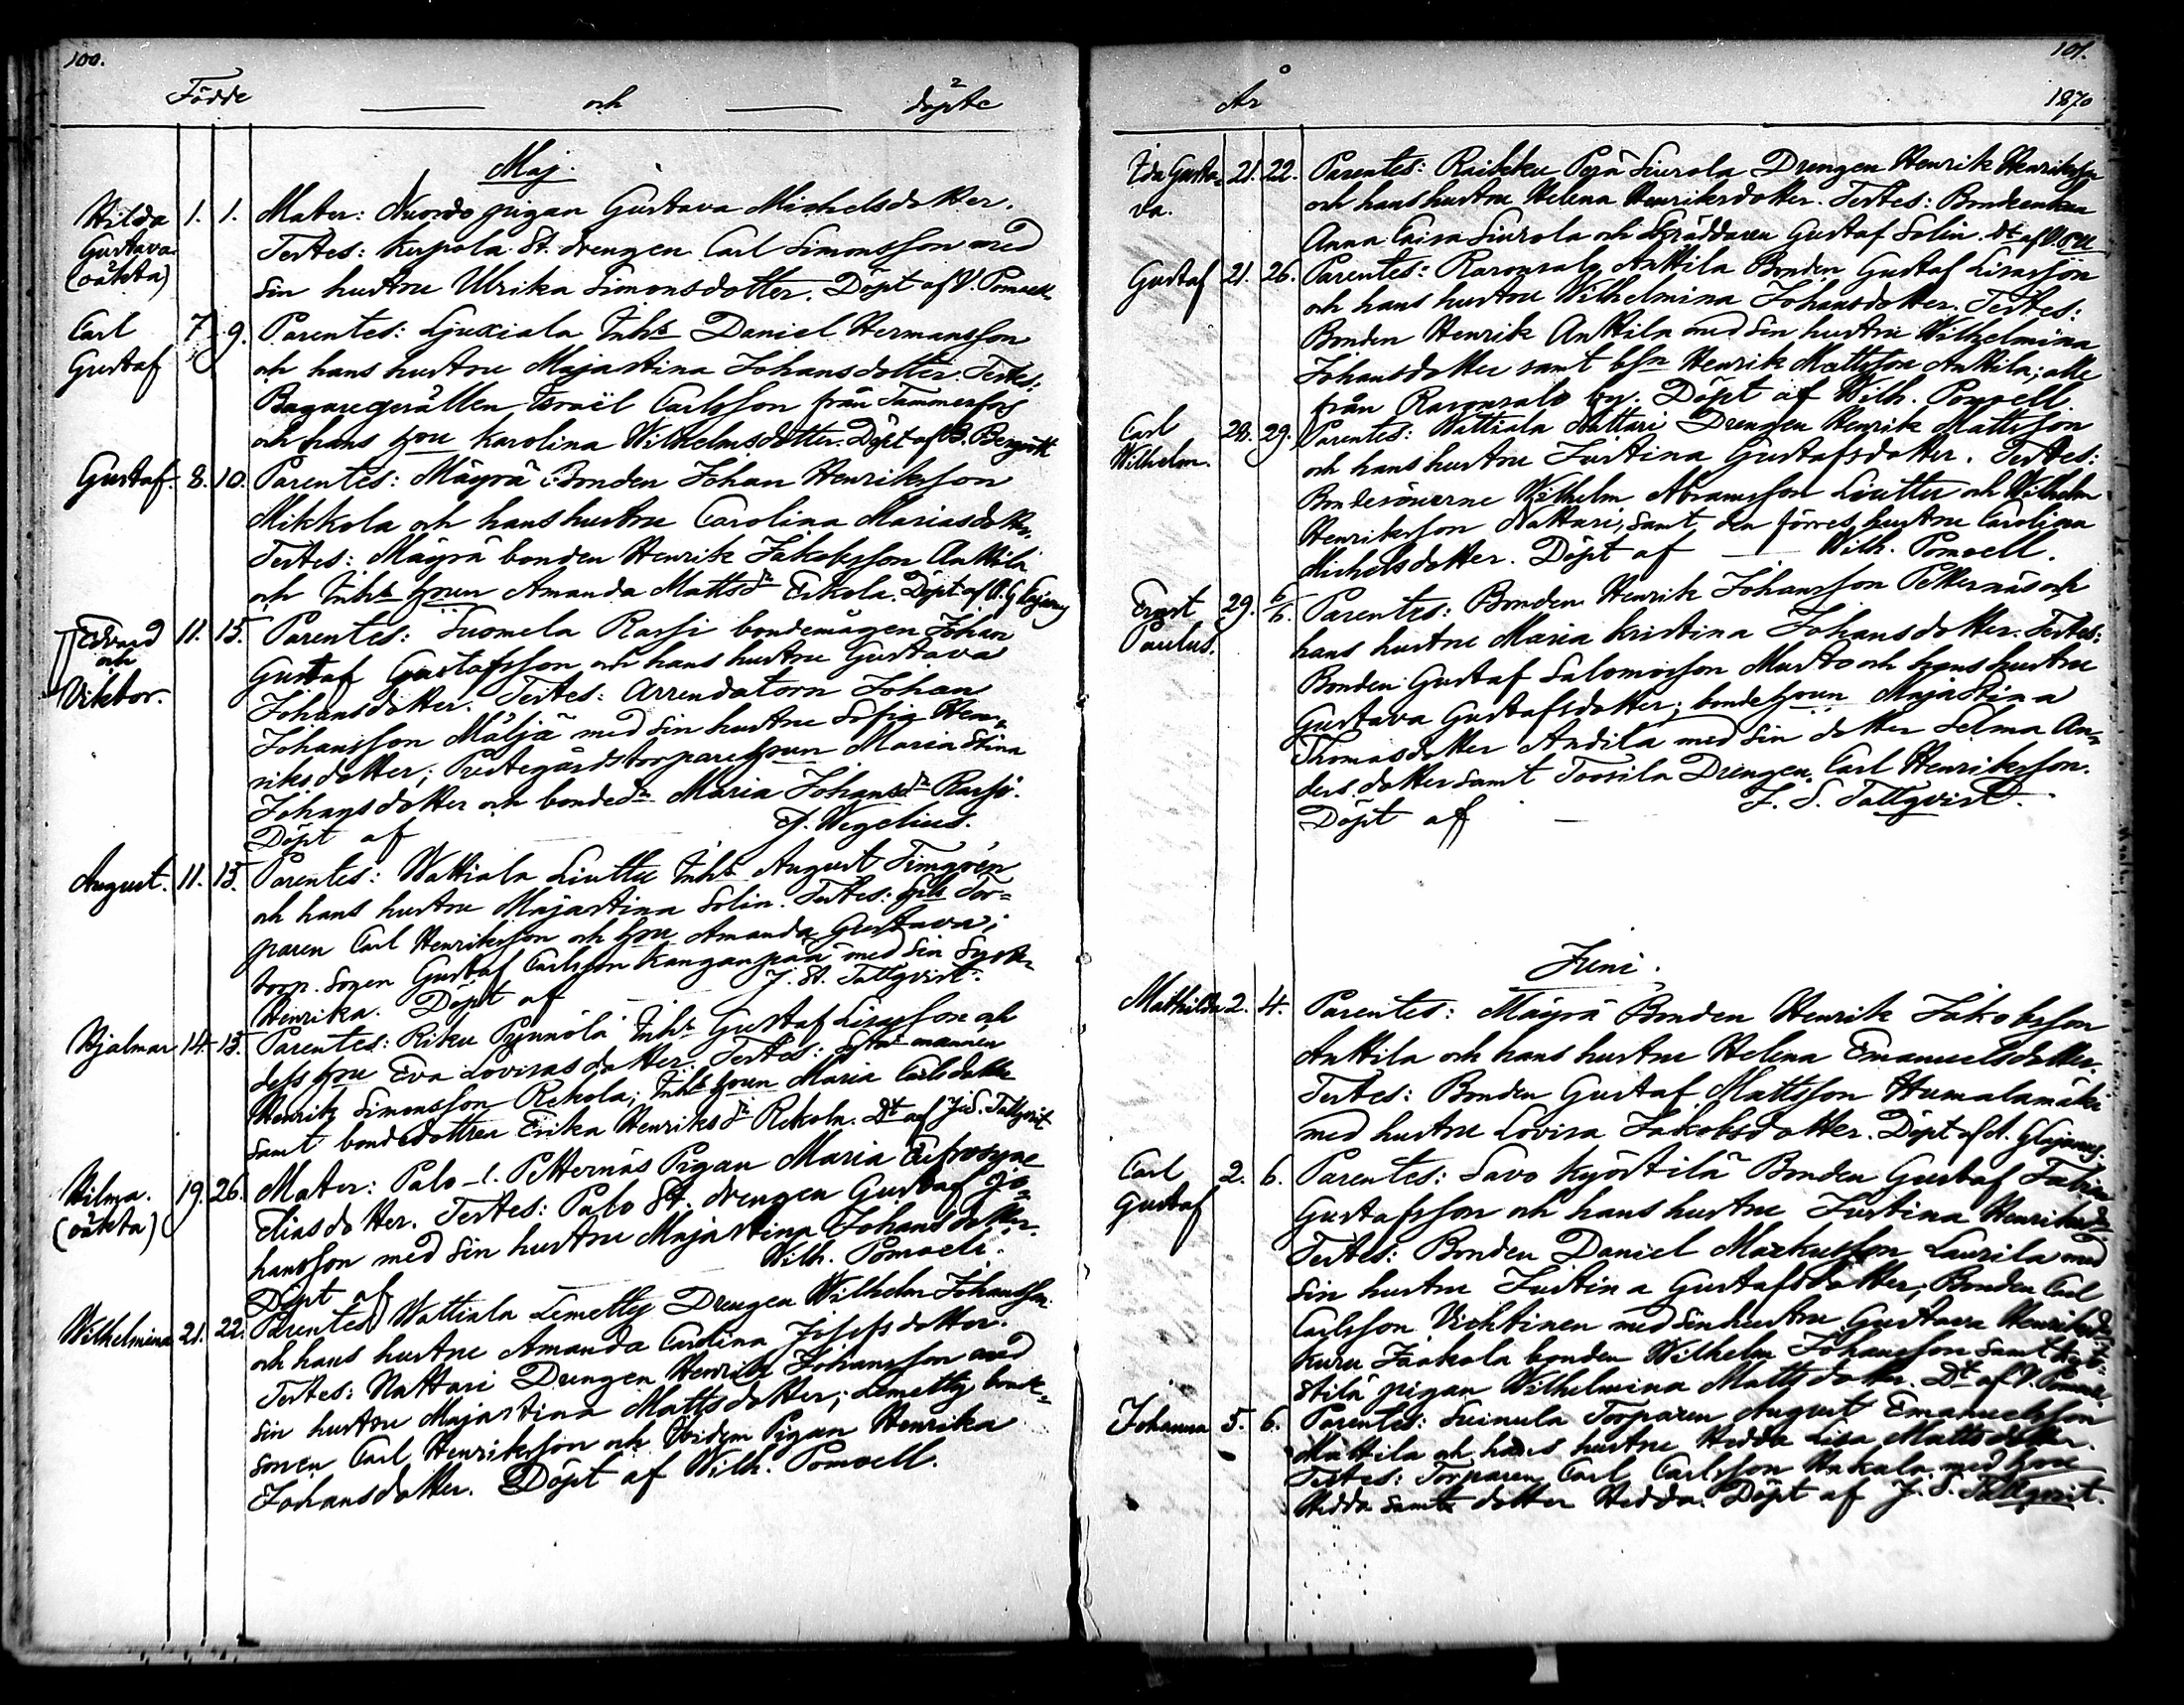 100.
Födde — och — döpte
Maj.
Hilda Gustava (oäkta) 1. 1. Mater: Nuordo pigan Gustava Michelsdotter.
Testes: Kirpola St. drengen Carl Simonsson med
sin hustru Ulrika Simonsdotter. Döpt af V. Pomoell
Carl Gustaf 7. 9. Parentes: Ljuxiala Inhs Daniel Hermansson
och hans hustru Majastina Johansdotter. Testes:
Bagaregesällen Israël Carlsson från Tammerfors
och hans hru Karolina Wilhelmsdotter. Döpt af B. Bergroth
Gustaf. 8. 10. Parentes: Mäyrä Bonden Johan Henriksson
Mikkola och hans hustru Carolina Mariasdotter.
Testes: Mäyrä bonden Henrik Jakobsson Anttila
och Inhs hrun Amanda Mattsdr Erkola. Döpt af A. Glajany
Edvard och Viktor. 11. 15. Parentes: Suomela Rassi bondemågen Johan
Gustaf Gustafsson och hans hustru Gustava
Johansdotter. Testes: Arrendatorn Johan
Johansson Mäljä med sin hustru Sofia Hen-
riksdotter; Prestegårdstorparehrun Maria Stina
Johansdotter och bondedr Maria Johansdr Rassi.
Döpt af — F. Wegelius.
August. 11. 15. Parentes: Wattiala Liuttu Inhs August Timgrén
och hans hustru Majastina Solin. Testes: Tor-
paren Carl Henriksson och hru Amanda Gustava;
torp. sonen Gustaf Carlsson Kanganpää med sin Syster
Henrika. Döpt af — J. St. Tallqvist.
Hjalmar 14. 15. Parentes: Riku Pynnölä Inhs Gustaf Lisasson och
dess hru Eva Lovisasdotter. Testes: mannen
Henrik Simonsson Rekola; Inhs hrun Maria Carlsdotter
samt bondedottren Erika Henriksdr Rekola. Dt af J. S. Tallqvist
Hilma. (oäkta) 19. 26. Mater: Palo l. Petternäs Pigan Maria Eufrosyne
Eliasdotter. Testes: Palo St. drengen Gustaf Jo-
hansson med sin hustru Majastina Johansdotter.
Döpt af — Wilh. Pomoell.
Wilhelmina 21. 22. Parentes: Wattiala Lemetty Drengen Wilhelm Johansson
och hans hustru Amanda Carolina Josefsdotter.
Testes: Nattari Drengen Henrik Johansson med
sin hustru Majastina Mattsdotter; Lemetty bonde-
sonen Carl Henriksson och ibidem Pigan Henrika
Johansdotter. Döpt af Wilh. Pomoell.
101.
År 1870
Ida Gustava. 21. 22. Parentes: Raikku Perä Siurola Drengen Henrik Henriksson
och hans hustru Helena Henriksdotter. Testes: Bondeenkan
Anna Caisa Siurola och Skräddaren Gustaf Solin. Dt af
Gustaf 21. 26. Parentes: Raronsalo Anttila Bonden Gustaf Lisasson
och hans hustru Wilhelmina Johansdotter. Testes:
Bonden Henrik Anttila med sin hustru Wilhelmina
Johansdotter samt bsn Henrik Mattsson Anttila; alla
från Raronsalo by. Döpt af Wilh. Pomoell.
Carl Wilhelm. 28. 29. Parentes: Wattiala Nattari Drengen Henrik Mattsson
och hans hustru Justina Gustafsdotter. Testes:
Bondesönerne Wilhelm Abramsson Liuttu och Wilhelm
Henriksson Nattari, samt den förres hustru Carolina
Michelsdotter. Döpt af — Wilh. Pomoell.
Ernst Paulus. 29. 6/6. Parentes: Bonden Henrik Johansson Petternäs och
hans hustru Maria Kristina Johansdotter. Testes:
Bonden Gustaf Salomonsson Musto och hans hustru
Gustava Gustafsdotter; bondehrun Majastina
Thomasdotter Andila med sin dotter Selma An-
dersdotter samt Toosila Drengen Carl Henriksson.
Döpt af — J. S. Tallqvist.
Juni.
Mathilda 2. 4. Parentes: Mäyrä Bonden Henrik Jakobsson
Anttila och hans hustru Helena Emanuelsdotter.
Testes: Bonden Gustaf Mattsson Humalamäki
med hustru Lovisa Jakobsdotter. Döpt af A. Glajany.
Carl Gustaf 2. 6. Parentes: Savo Kyöstilä Bonden Gustaf Fabian
Gustafsson och hans hustru Justina Henriksdr
Testes: Bonden Daniel Markusson Laurila med
sin hustru Justina Gustafsdotter; Bonden Carl
Carlsson Vichtinen med sin hustru Gustava Henriksdr,
Kuru Jaakola bonden Wilhelm Johansson samt Kyö-
stilä pigan Wilhelmina Mattsdotter. Dt af V. Pomoell
Johanna 5. 6. Parentes: Suinula Torparen August Emanuelsson
Mattila och hans hustru Hedda Lisa Mattsdotter.
Testes: Torparen Carl Carlsson Hakala med hru
Hedda samt dotter Hedda. Döpt af J. S. Tallqvist.